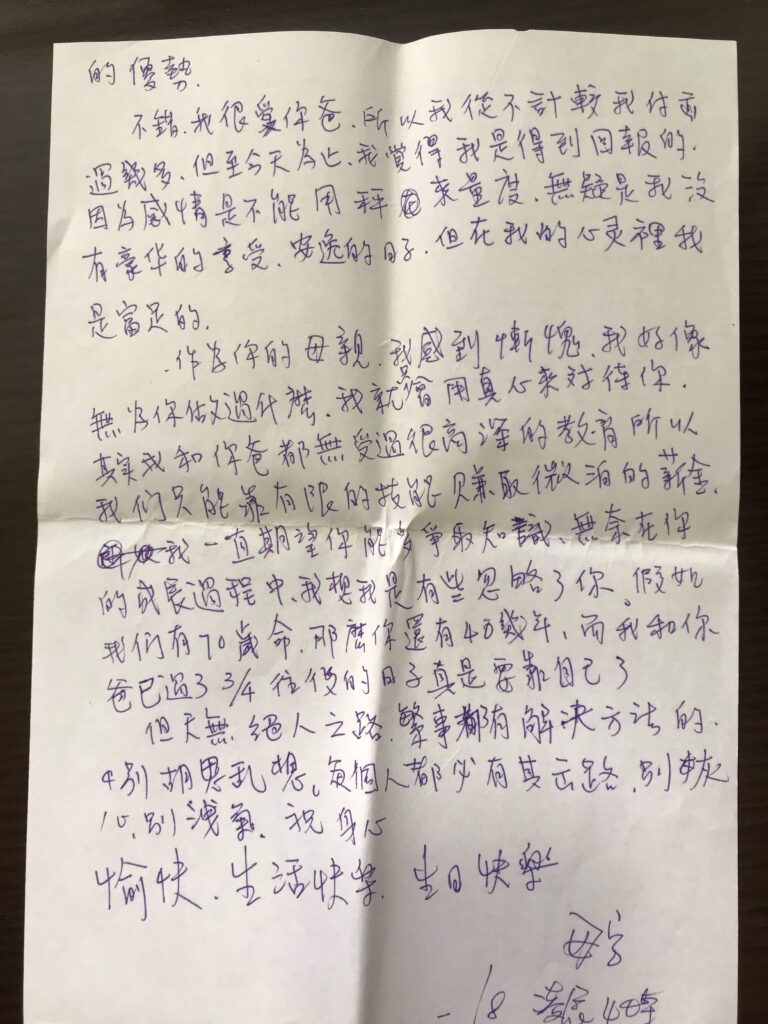 的優勢.
不錯.我很愛你爸.所以我從不計較我付出
過幾多.但至今天為止.我覺得我是得到回報的.
因為感情是不能用秤來量度.無疑是我沒
有豪华的享受.安逸的日子.但在我的心灵裡我
是富足的.
作为你的母親.我感到慚愧.我好像
無为你做过什麽.我就只會用真心来对待你.
真实我和你爸都無受過很高深的教育所以
我们只能靠有限的技能賺取微泊的薪金.
我一直期望你能多爭取知識、無奈在你
的成長過程中、我想我是有些忽略了你。假如
我们有70歲命.那麽你還有40幾年、而我和你
爸已過了3/4往後的日子真是要靠自己了
但天無絕人之路.繁事都有解决方法的.
別胡思乱想。每個人都必有其出路.別灰
心.別洩氣.祝身心
愉快.生活快樂.生日快樂
母字
1/8 凌晨4